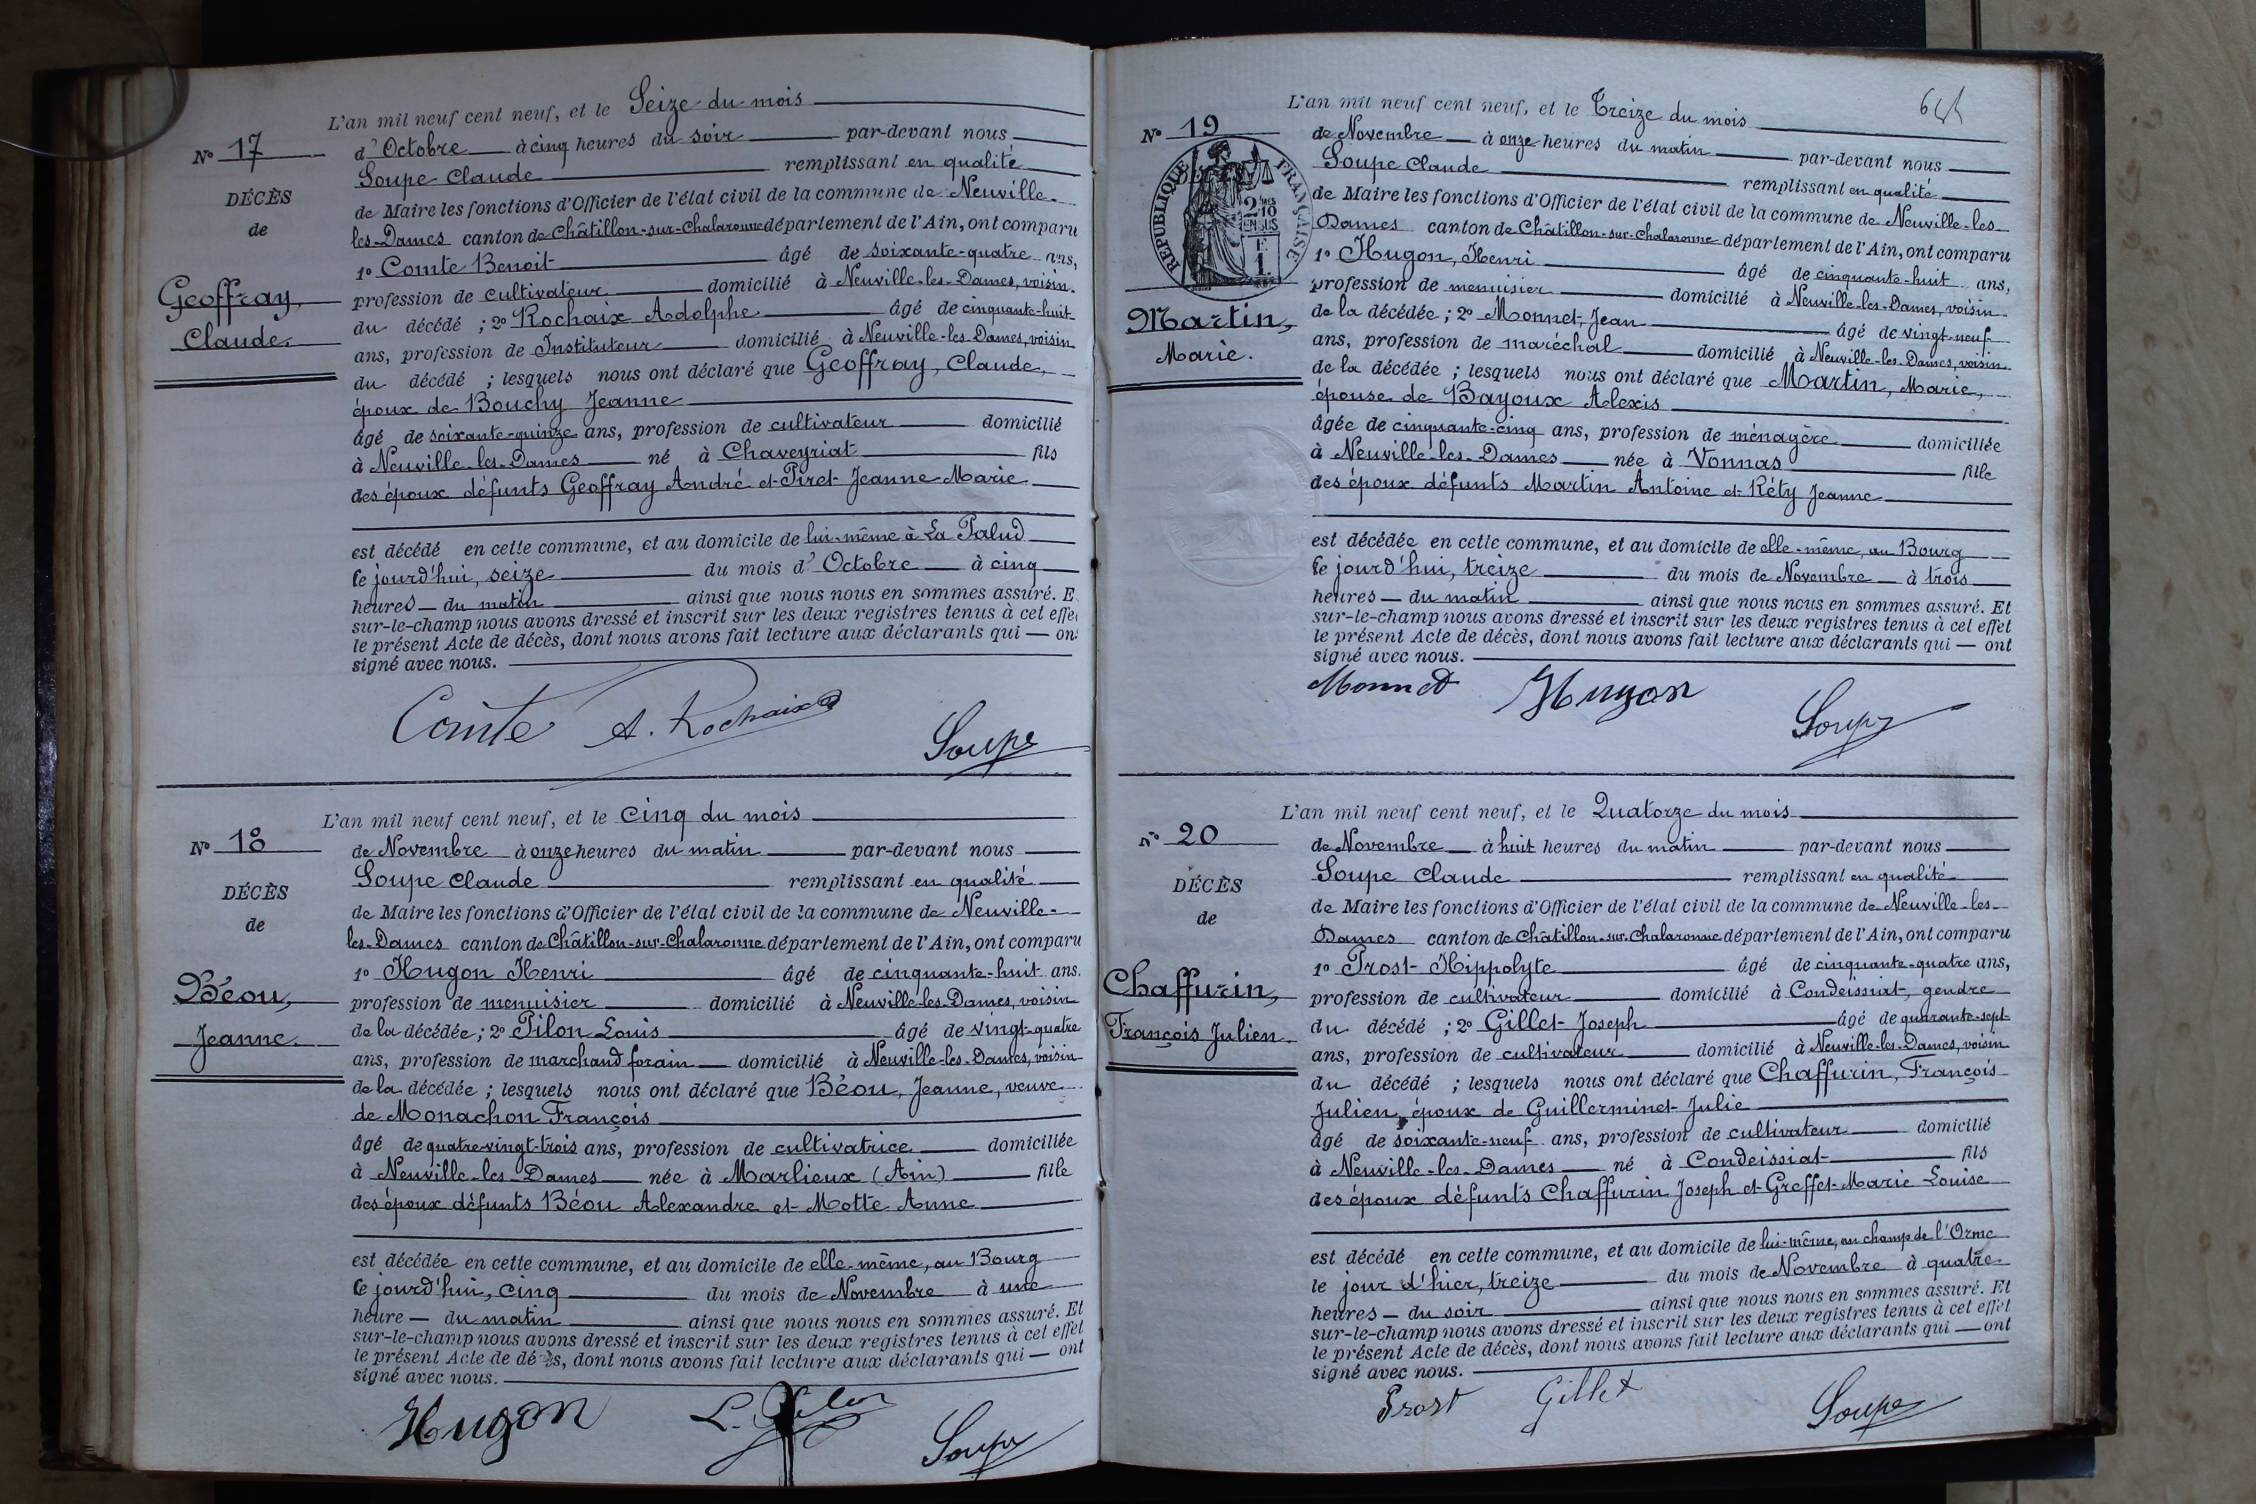 L'an mil neuf cent neuf, et le Seize du mois
N° 17
d'Octobre à cinq heures du soir par-devant nous
Soupe Claude remplissant en qualité
DÉCÈS
de Maire les fonctions d'Officier de l'état civil de la commune de Neuville-
de
les-Dames canton de Châtillon-sur-Chalaronne département de l'Ain, ont comparu
1° Comte Benoit âgé de soixante-quatre ans,
Geoffray,
profession de cultivateur domicilié à Neuville-les-Dames, voisin
du décédé ; 2° Rochaix Adolphe âgé de cinquante-huit
Claude.
ans, profession de Instituteur domicilié à Neuville-les-Dames, voisin
du décédé ; lesquels nous ont déclaré que Geoffray, Claude,
époux de Bouchy Jeanne
âgé de soixante-quinze ans, profession de cultivateur domicilié
à Neuville-les-Dames né à Chaveyriat fils
des époux défunts Geoffray André et Piret Jeanne Marie
est décédé en cette commune, et au domicile de lui-même à La Palud
ce jourd'hui, seize du mois d'Octobre à cinq
heures du matin ainsi que nous nous en sommes assuré. E
sur-le-champ nous avons dressé et inscrit sur les deux registres tenus à cet effe
le présent Acte de décès, dont nous avons fait lecture aux déclarants qui — on
signé avec nous.
Comte A. Rochaix Soupe
L'an mil neuf cent neuf, et le cinq du mois
N° 18
de Novembre à onze heures du matin par-devant nous
Soupe Claude remplissant en qualité
DÉCÈS
de Maire les fonctions d'Officier de l'état civil de la commune de Neuville-
de
les-Dames canton de Châtillon-sur-Chalaronne département de l'Ain, ont comparu
1° Hugon Henri âgé de cinquante-huit ans.
Béou,
profession de menuisier domicilié à Neuville-les-Dames, voisin
de la décédée ; 2° Pilon Louis âgé de vingt-quatre
Jeanne.
ans, profession de marchand forain domicilié à Neuville-les-Dames, voisin
de la décédée ; lesquels nous ont déclaré que Béou, Jeanne, veuve
de Monachon François
âgé de quatre-vingt-trois ans, profession de cultivatrice domiciliée
à Neuville-les-Dames née à Marlieux (Ain) fille
des époux défunts Béou Alexandre et Motte Anne
est décédée en cette commune, et au domicile de elle-même, au Bourg
ce jourd'hui, cinq du mois de Novembre à une
heure — du matin ainsi que nous nous en sommes assuré. Et
sur-le-champ nous avons dressé et inscrit sur les deux registres tenus à cet effet
le présent Acte de décès, dont nous avons fait lecture aux déclarants qui — ont
signé avec nous.
Hugon L. Pilon Soupe
L'an mil neuf cent neuf, et le Treize du mois
N° 19
de Novembre à onze heures du matin par-devant nous
Soupe Claude remplissant en qualité
RÉPUBLIQUE FRANÇAISE
2 10 EN SUS
F 1
de Maire les fonctions d'Officier de l'état civil de la commune de Neuville-les-
Dames canton de Châtillon-sur-Chalaronne département de l'Ain, ont comparu
1° Hugon, Henri âgé de cinquante-huit ans,
profession de menuisier domicilié à Neuville-les-Dames, voisin
Martin,
de la décédée ; 2° Monnet, Jean âgé de vingt-neuf
Marie.
ans, profession de maréchal domicilié à Neuville-les-Dames, voisin
de la décédée ; lesquels nous ont déclaré que Martin, Marie,
épouse de Bayoux Alexis
âgée de cinquante-cinq ans, profession de ménagère domiciliée
à Neuville-les-Dames née à Vonnas fille
des époux défunts Martin Antoine et Réty Jeanne
est décédée en cette commune, et au domicile de elle-même, au Bourg
ce jourd'hui, treize du mois de Novembre à trois
heures — du matin ainsi que nous nous en sommes assuré. Et
sur-le-champ nous avons dressé et inscrit sur les deux registres tenus à cet effet
le présent Acte de décès, dont nous avons fait lecture aux déclarants qui — ont
signé avec nous.
Monnet Hugon Soupe
L'an mil neuf cent neuf, et le Quatorze du mois
N° 20
de Novembre à huit heures du matin par-devant nous
Soupe Claude remplissant en qualité
DÉCÈS
de Maire les fonctions d'Officier de l'état civil de la commune de Neuville-les-
de
Dames canton de Châtillon-sur-Chalaronne département de l'Ain, ont comparu
1° Prost Hippolyte âgé de cinquante-quatre ans,
Chaffurin,
profession de cultivateur domicilié à Condeissiat, gendre
du décédé ; 2° Gillet Joseph âgé de quarante-sept
François Julien.
ans, profession de cultivateur domicilié à Neuville-les-Dames, voisin
du décédé ; lesquels nous ont déclaré que Chaffurin, François
Julien, époux de Guillerminet Julie
âgé de soixante-neuf ans, profession de cultivateur domicilié
à Neuville-les-Dames né à Condeissiat fils
des époux défunts Chaffurin Joseph et Greffet Marie Louise
est décédé en cette commune, et au domicile de lui-même, au champ de l'Orme
le jour d'hier, treize du mois de Novembre à quatre
heures — du soir ainsi que nous nous en sommes assuré. Et
sur-le-champ nous avons dressé et inscrit sur les deux registres tenus à cet effet
le présent Acte de décès, dont nous avons fait lecture aux déclarants qui — ont
signé avec nous.
Prost Gillet Soupe